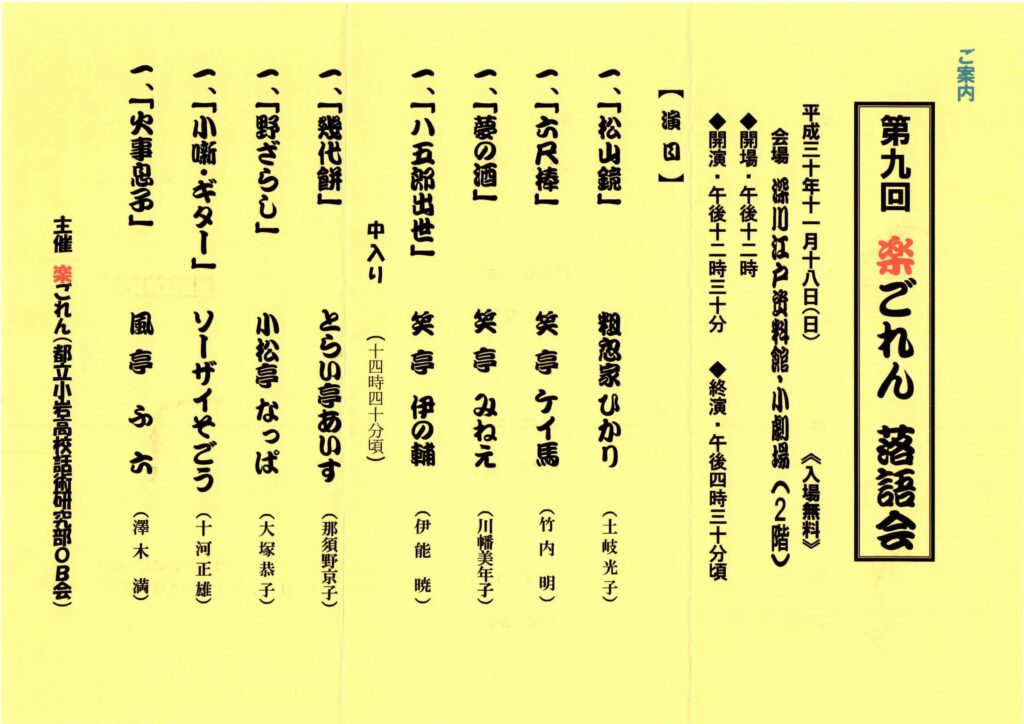 ご案内
第九回 楽ごれん 落語会
平成三十年十一月十八日(日) 《入場無料》
会場 深川江戸資料館・小劇場(2階)
◆開場・午後十二時
◆開演・午後十二時三十分 ◆終演・午後四時三十分頃
【演目】
一、「松山鏡」 粗忽家ひかり (土岐光子)
一、「六尺棒」 笑亭ケイ馬 (竹内明)
一、「夢の酒」 笑亭みねえ (川幡美年子)
一、「八五郎出世」 笑亭伊の輔 (伊能暁)
中入り (十四時四十分頃)
一、「幾代餅」 とらい亭あいす (那須野京子)
一、「野ざらし」 小松亭なっぱ (大塚恭子)
一、「小噺・ギター」 ソーザイそごう (十河正雄)
一、「火事息子」 風亭ふ六 (澤木満)
主催 楽ごれん(都立小岩高校話術研究部OB会)